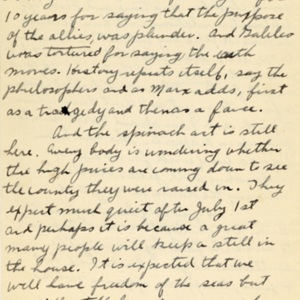 10 years for saying that the purpose
of the allies, was plunder. And Galileo
was tortured for saying the earth
moves. History repeats itself, say the
philosophers and as Marx adds, first
as a tragedy and then as a farce.
And the spinach art is still
here. Every body is wondering whether
the high prices are coming down to see
the country they were raised in. They
expect much quiet after July 1st
and perhaps it is because a great
many people will keep a still in
the house. It is expected that we
will have freedom of the seas but